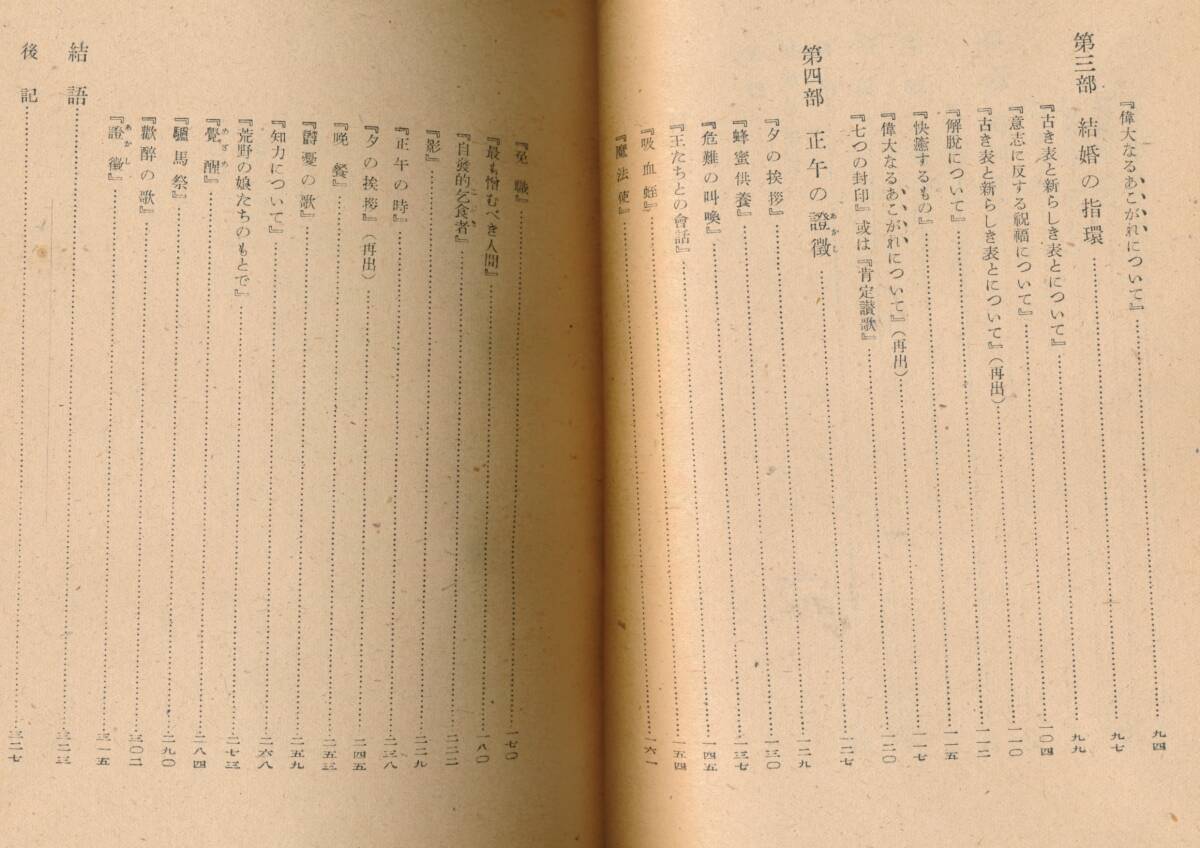 『偉大なるあこがれについて』 九四
第三部 結婚の指環 九七
『古き表と新らしき表とについて』 九九
『意志に反する祝福について』 一〇四
『古き表と新らしき表とについて』(再出) 一一〇
『解脫について』 一一二
『快癒するもの』 一一五
『偉大なるあこがれについて』(再出) 一一七
『七つの封印』或は『肯定讃歌』 一二〇
第四部 正午の證徵 一二七
『夕の挨拶』 一二九
『蜂蜜供養』 一三〇
『危難の叫喚』 一三七
『王たちとの會話』 一四五
『吸血蛭』 一五四
『魔法使』 一六一
『免職』 一七〇
『最も憎むべき人間』 一八〇
『自發的乞食者』 二二二
『影』 二二九
『正午の時』 二三八
『夕の挨拶』(再出) 二四五
『晩餐』 二五三
『鬱憂の歌』 二五九
『知力について』 二六八
『荒野の娘たちのもとで』 二七三
『覺醒』 二八四
『驢馬祭』 二九〇
『歡醉の歌』 三〇二
『證徵』 三一五
結語 三二三
後記 三二七